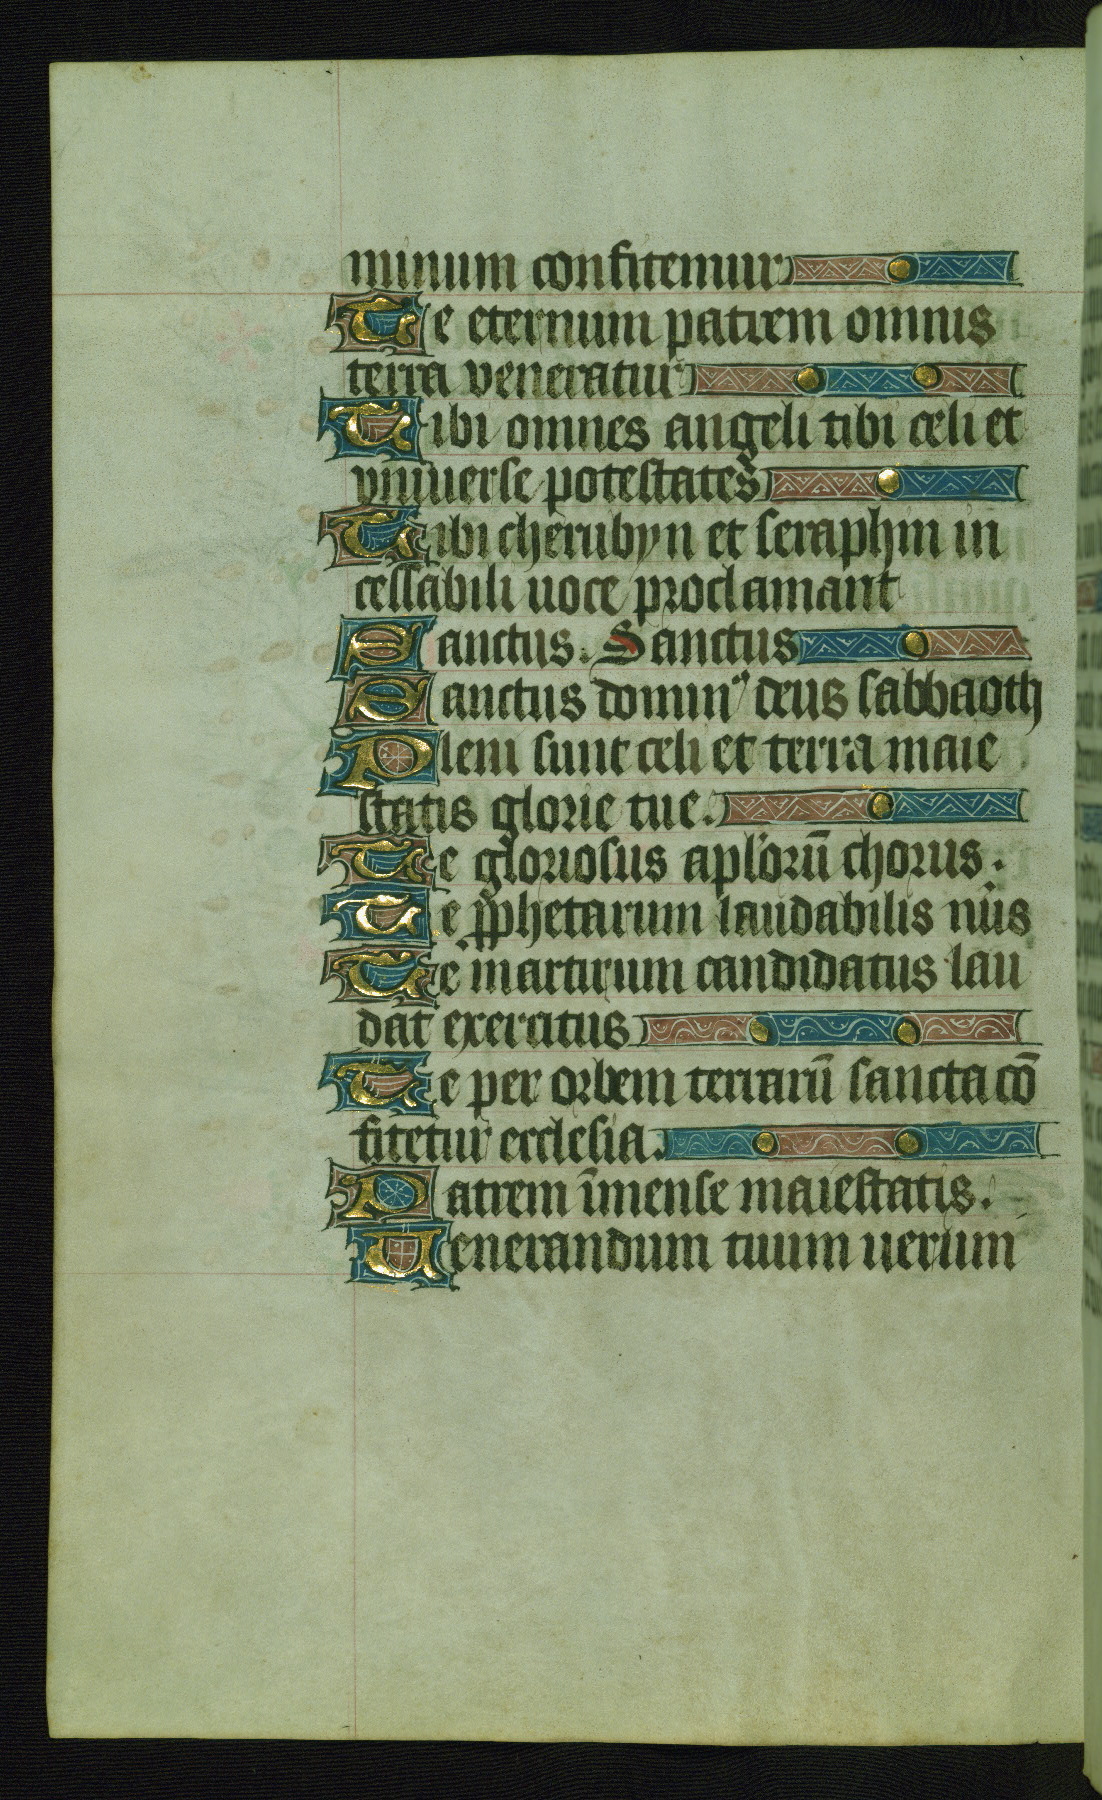 minum confitemur
Te eternum patrem omnis
terra veneratur
Tibi omnes angeli tibi celi et
vniuerse potestates
Tibi cherubyn et seraphin in
cessabili uoce proclamant
Sanctus. Sanctus
Sanctus dominꝰ deus sabbaoth
Pleni sunt celi et terra maie
statis glorie tue.
Te gloriosus aplorū chorus.
Te ꝓphetarum laudabilis nūs
Te martirum candidatus lau
dat exercitus
Te per orbem terrarū sancta cō
fitetur ecclesia.
Patrem īmense maiestatis.
Uenerandum tuum uerum